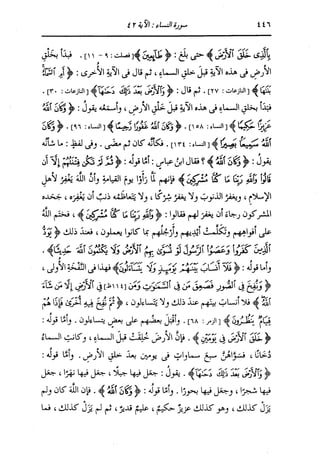 ٤٤٦ سورة النساء : الآية ٤٢
بِالَّذِى خَلَقَ الْأَرْضَ ﴾ حتى بلغ : ﴿ طَآئِعِينَ ﴾ [فصلت : ٩ - ١١] . فبدأ بخلقِ
الأرضِ فى هذه الآيةِ قبلَ خلقِ السماءِ ، ثم قال فى الآيةِ الأُخرى : ﴿ أَمِ السَّمَآءُ
بَنَهَا ﴾ [النازعات : ٢٧] . ثم قال : ﴿ وَالْأَرْضَ بَعْدَ ذَلِكَ دَحَنهَا ﴾ [النازعات : ٣٠] .
فبدَأ بخلقِ السماءِ فى هذه الآيةِ قبلَ خلقِ الأرضِ ، وأسمَعُه يقولُ : ﴿ وَكَانَ اللَّهُ
عَزِيزًا حَكِيمًا ﴾ [النساء : ١٥٨] . ﴿ وَكَانَ اللَّهُ غَفُورًا رَّحِيمًا ﴾ [النساء : ٩٦] . ﴿ وَكَانَ
اللَّهُ سَمِيعًا بَصِيرًا ﴾ [النساء : ١٣٤] . فكأنَّه كان ثم مضى . وفى لفظٍ : ما شأنُه
يقولُ : ﴿ وَكَانَ اللَّهُ ﴾ ؟ فقال ابنُ عباسٍ : أمَّا قولُه : ﴿ ثُمَّ لَمْ تَكُن فِتْنَتُهُمْ إِلَّآ أَن
قَالُوا وَاللَّهِ رَبِّنَا مَا كُنَّا مُشْرِكِينَ ﴾ فإنهم لمَّا رأَوْا يومَ القيامةِ وأنَّ اللَّهَ يغفِرُ لأهلِ
الإسلامِ ، ويغفِرُ الذنوبَ ولا يغفِرُ شِرْكًا ، ولا يتَعاظَمُه ذنبٌ أن يغفِرَه ، جحَده
المشرِكون رجاءَ أن يغفِرَ لهم فقالوا : ﴿ وَاللَّهِ رَبِّنَا مَا كُنَّا مُشْرِكِينَ ﴾ ، فختَم اللَّهُ
على أفواهِهم وتكلَّمت أيدِيهم وأرجُلُهم بما كانوا يعمَلون ، فعندَ ذلك ﴿ يَوَدُّ
الَّذِينَ كَفَرُوا وَعَصَوُا الرَّسُولَ لَوْ تُسَوَّى بِهِمُ الْأَرْضُ وَلَا يَكْتُمُونَ اللَّهَ حَدِيثًا ﴾ .
وأما قولُه : ﴿ فَلَآ أَنسَابَ بَيْنَهُمْ يَوْمَئِذٍ وَلَا يَتَسَآءَلُونَ ﴾ فهذا فى النفخةِ الأولى ،
﴿ وَنُفِخَ فِى الصُّورِ فَصَعِقَ مَن فِى السَّمَوَتِ وَمَن فِى الْأَرْضِ إِلَّا مَن شَآءَ
اللَّهُ ﴾ فلا أنسابَ بينَهم عندَ ذلك ولا يتساءلون ، ﴿ ثُمَّ نُفِخَ فِيهِ أُخْرَى فَإِذَا هُمْ
قِيَامٌ يَنظُرُونَ ﴾ [الزمر : ٦٨] . وأقبَل بعضُهم على بعضٍ يتساءلون . وأمَّا قولُه :
﴿ خَلَقَ الْأَرْضَ فِى يَوْمَيْنِ ﴾ . فإنَّ الأرضَ خُلِقت قبلَ السماءِ ، وكانت السماءُ
دُخَانًا ، فسوَّاهُنَّ سبعَ سماواتٍ فى يومين بعدَ خلقِ الأرضِ . وأمَّا قولُه :
﴿ وَالْأَرْضَ بَعْدَ ذَلِكَ دَحَنهَا ﴾ . يقولُ : جعَل فيها جبلًا ، جعَل فيها نهرًا ، جعَل
فيها شجرًا ، وجعَل فيها بحورًا . وأمَّا قولُه : ﴿ وَكَانَ اللَّهُ ﴾ . فإن اللَّهَ كان ولم
يزَلْ كذلك ، وهو كذلك عزيزٌ حكيمٌ ، عليمٌ قديرٌ ، ثم لم يزَلْ كذلك ، فما